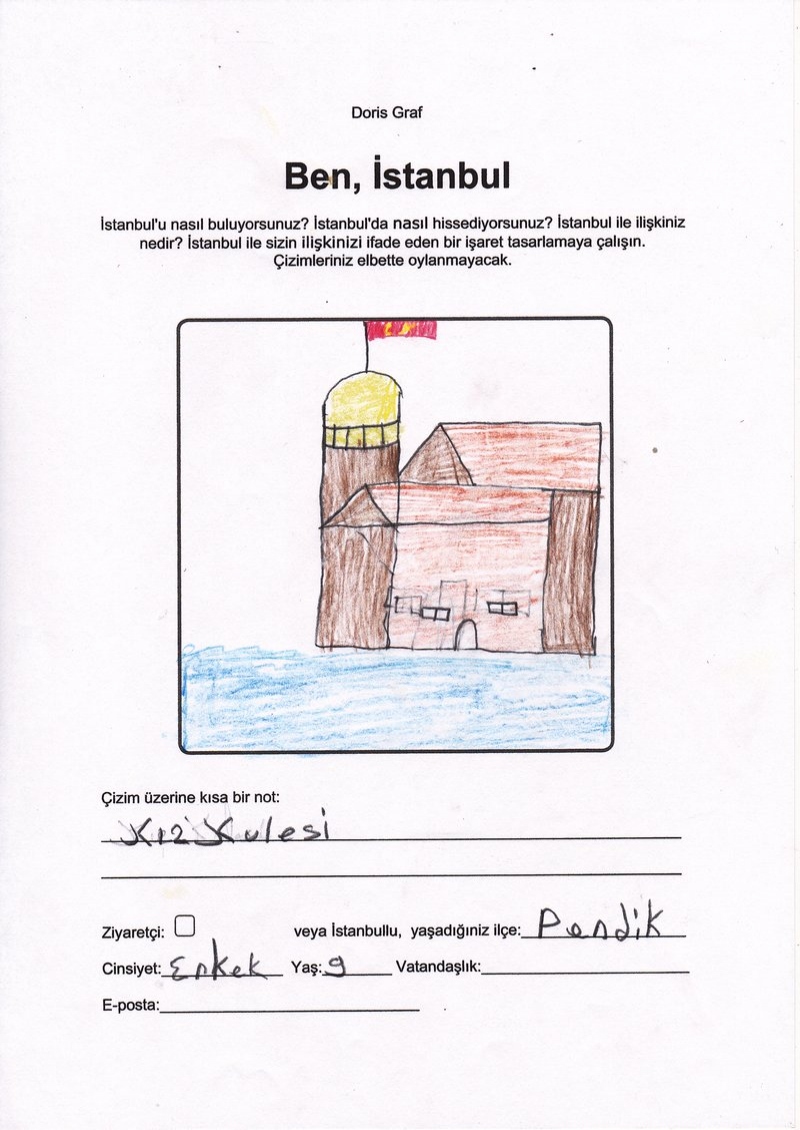 Doris Graf
Ben, İstanbul
İstanbul'u nasıl buluyorsunuz? İstanbul'da nasıl hissediyorsunuz? İstanbul ile ilişkiniz
nedir? İstanbul ile sizin ilişkinizi ifade eden bir işaret tasarlamaya çalışın.
Çizimleriniz elbette oylanmayacak.
Çizim üzerine kısa bir not:
Kız Kulesi
Ziyaretçi: veya İstanbullu, yaşadığınız ilçe: Pendik
Cinsiyet: Erkek Yaş: 9 Vatandaşlık:
E-posta: